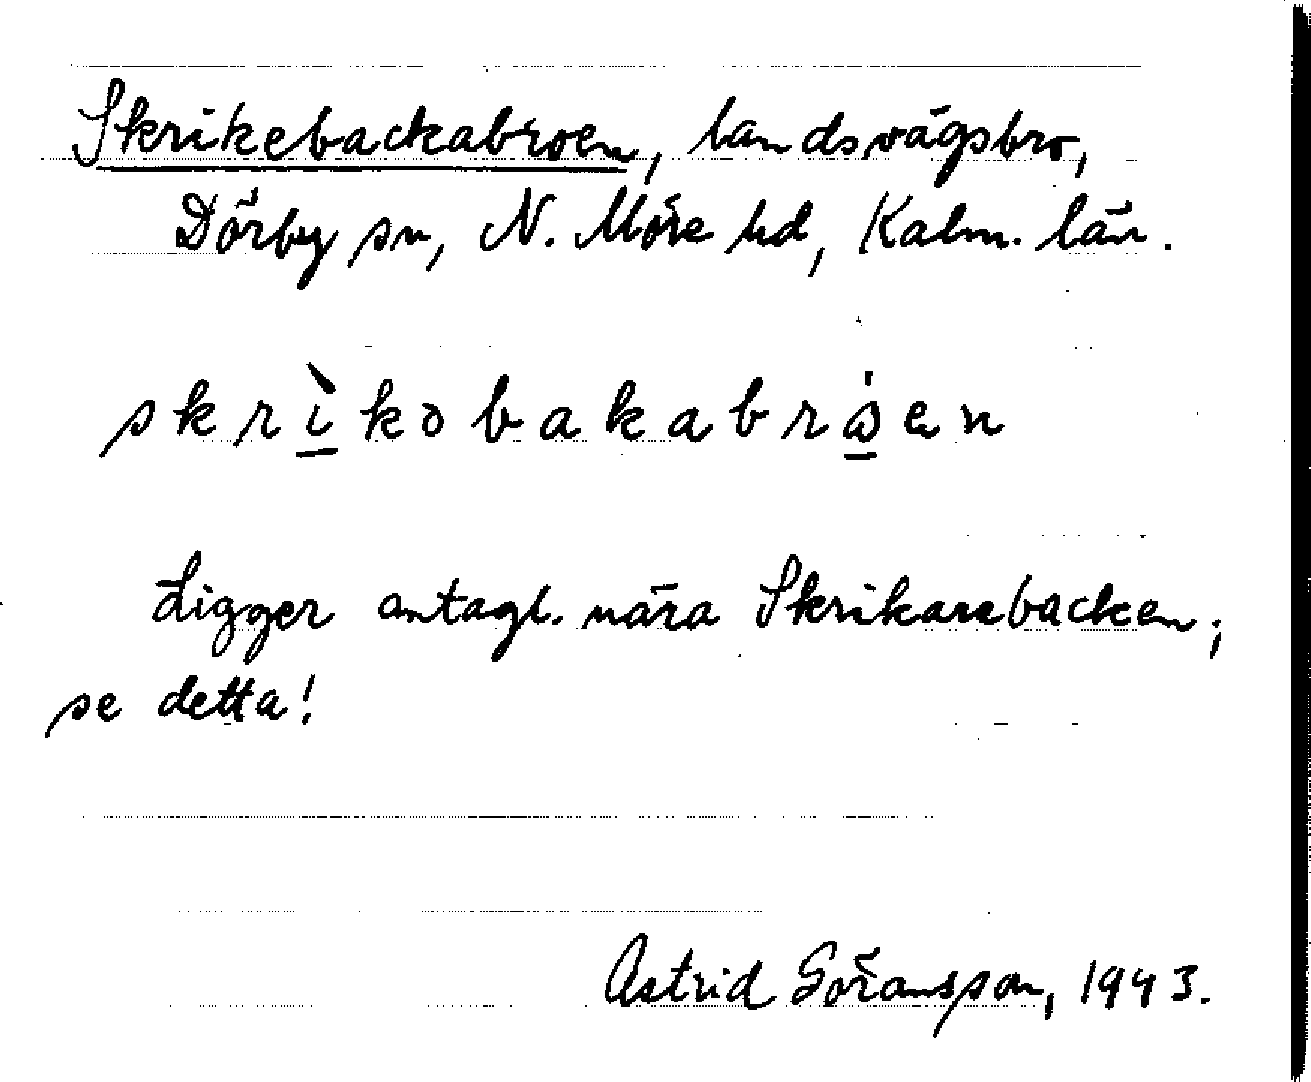 Skrikebackabroen, landsvägsbro,
Dörby sn, N. Möre hd, Kalm. län.
skrìkobakabrω̇en
Ligger antagl. nära Skrikarebacken;
se detta!
Astrid Göransson, 1943.